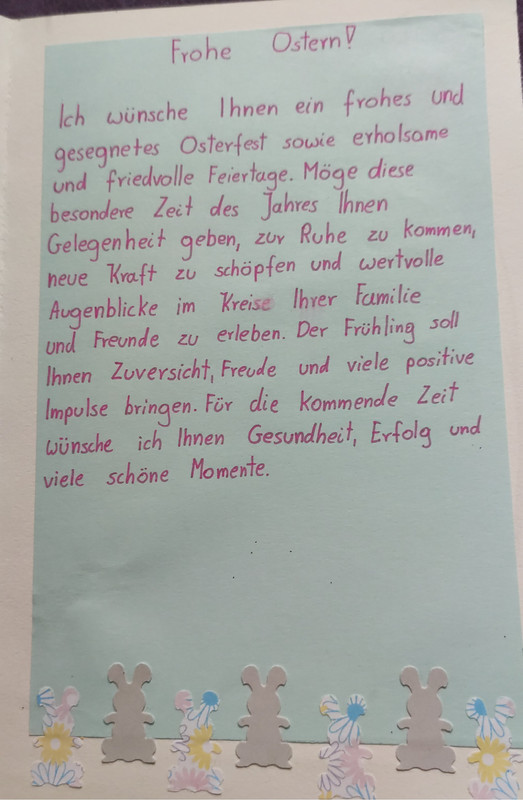 Frohe Ostern!
Ich wünsche Ihnen ein frohes und
gesegnetes Osterfest sowie erholsame
und friedvolle Feiertage. Möge diese
besondere Zeit des Jahres Ihnen
Gelegenheit geben, zur Ruhe zu kommen,
neue Kraft zu schöpfen und wertvolle
Augenblicke im Kreise Ihrer Familie
und Freunde zu erleben. Der Frühling soll
Ihnen Zuversicht, Freude und viele positive
Impulse bringen. Für die kommende Zeit
wünsche ich Ihnen Gesundheit, Erfolg und
viele schöne Momente.